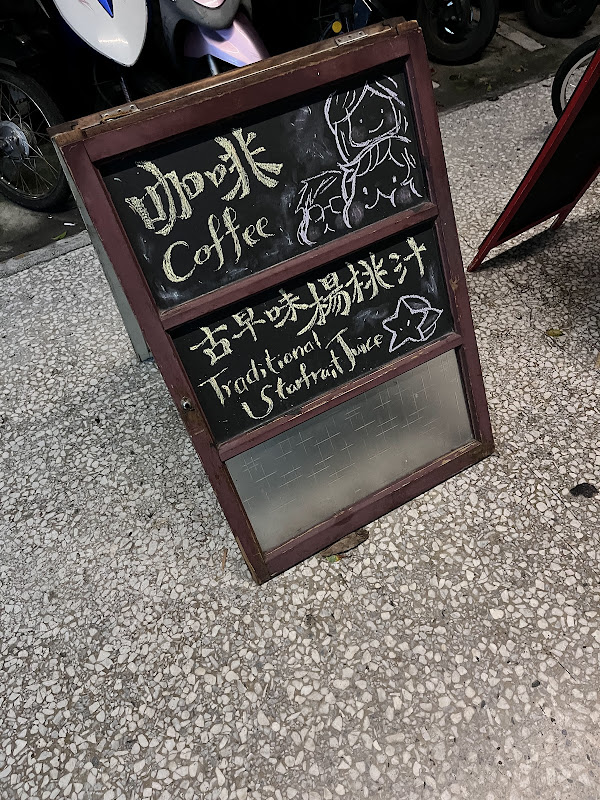 咖啡
Coffee
古早味楊桃汁
Traditional
Starfruit Juice